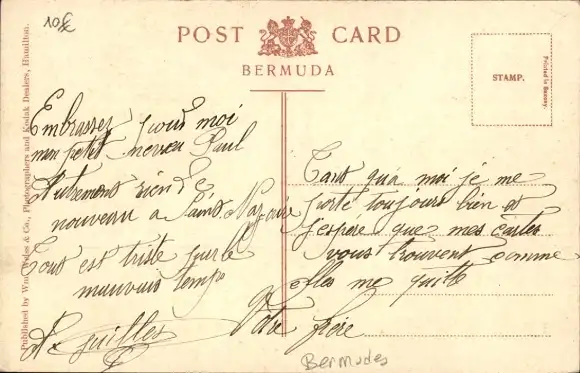 10€
POST CARD
BERMUDA
STAMP.
Printed in Saxony.
Published by Wm. Weiss & Co., Photographers and Kodak Dealers, Hamilton.
Embrasser pour moi
mon petit neveu Paul
Autrement rien de
nouveau a Saint Nazaire
Tout est triste par le
mauvais temps
Tant qua moi je me
porte toujours bien et
j'espère que mes cartes
vous trouvent comme
elles me quitte
Votre frère
Bermudes